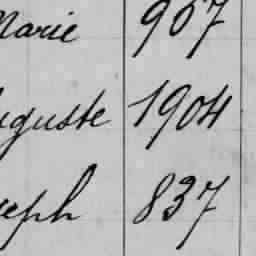 Marie 907
uguste 1904
seph 837